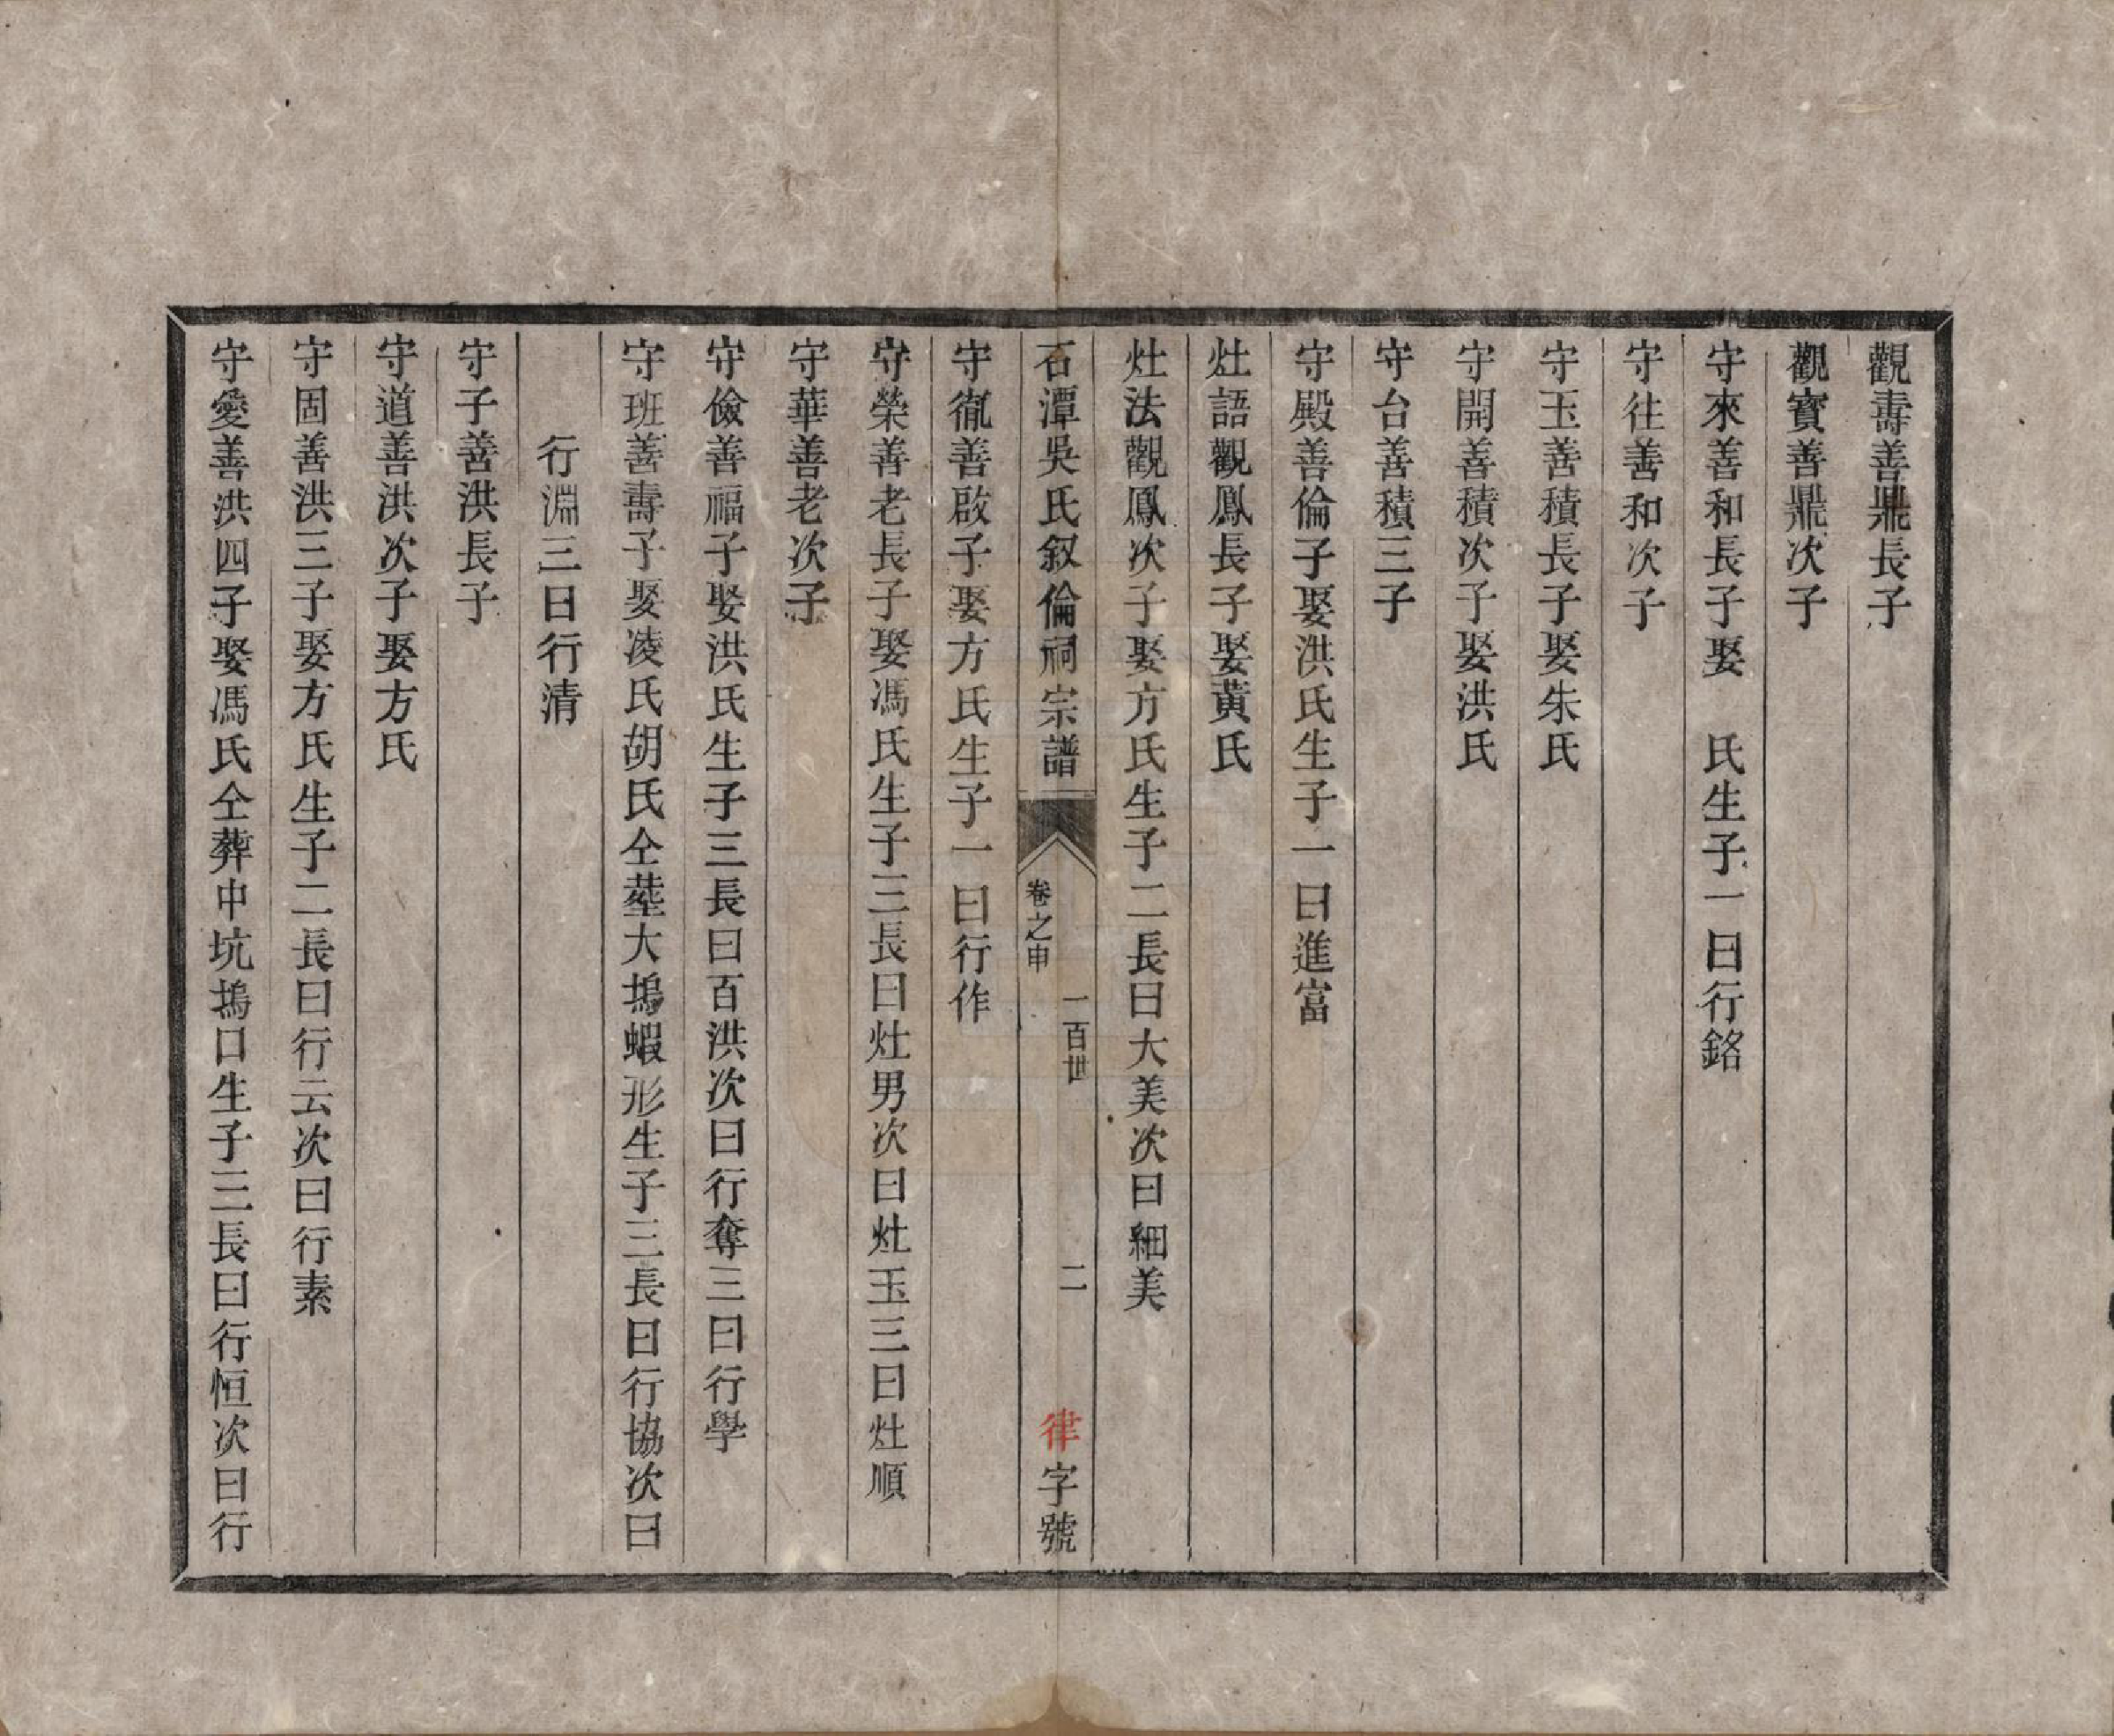 觀壽善鼎長子
觀寳善鼎次子
守來善和長子娶　氏生子一曰行銘
守往善和次子
守玉善積長子娶朱氏
守開善積次子娶洪氏
守台善積三子
守殿善倫子娶洪氏生子一曰進富
灶語觀鳳長子娶黃氏
灶法觀鳳次子娶方氏生子二長曰大美次曰細美
石潭吳氏叙倫祠宗譜
卷之申
一百世
二
律字號
守胤善啟子娶方氏生子一曰行作
守榮善老長子娶馮氏生子三長曰灶男次曰灶玉三曰灶順
守華善老次子
守儉善福子娶洪氏生子三長曰百洪次曰行奪三曰行學
守班善壽子娶凌氏胡氏仝塟大塢蝦形生子三長曰行協次曰
行淵三曰行清
守子善洪長子
守道善洪次子娶方氏
守固善洪三子娶方氏生子二長曰行云次曰行素
守愛善洪四子娶馮氏仝葬中坑塢口生子三長曰行恒次曰行